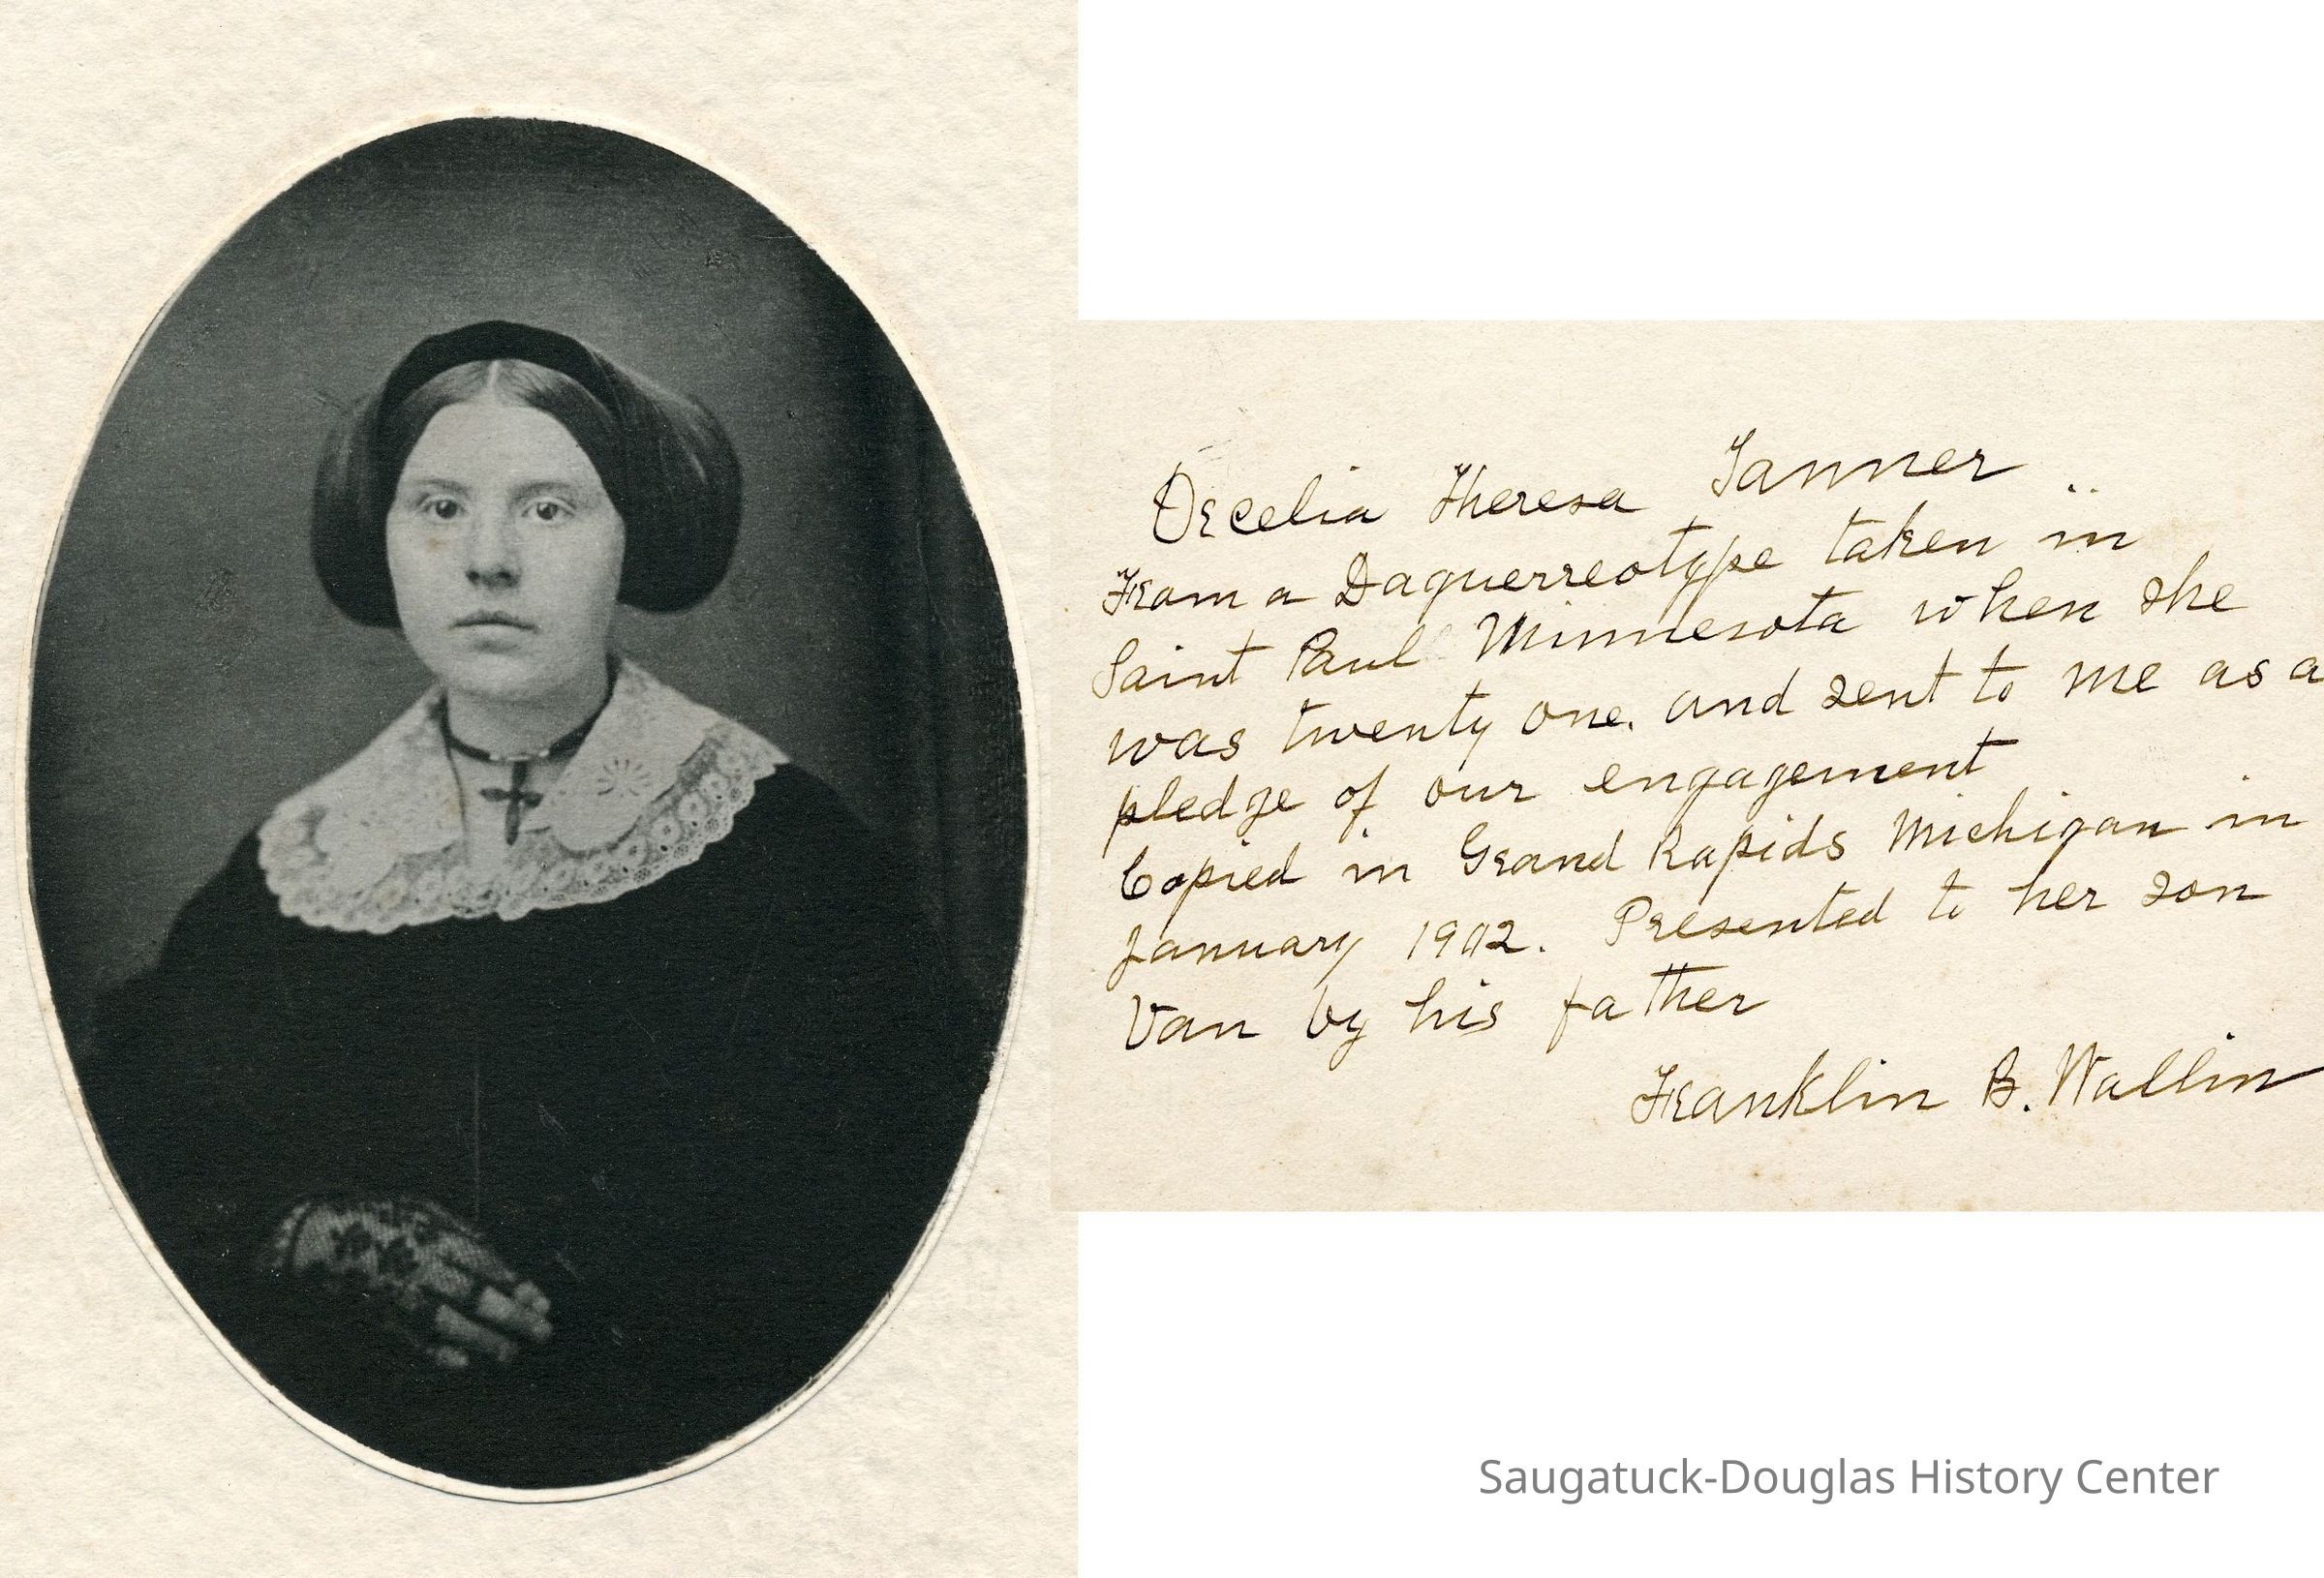 Orcelia Theresa Tanner
From a Daguerreotype taken in
Saint Paul Minnesota when she
was twenty one. and sent to me as a
pledge of our engagement
Copied in Grand Rapids Michigan in
January 1902. Presented to her son
Van by his father
Franklin B. Wallin
Saugatuck-Douglas History Center